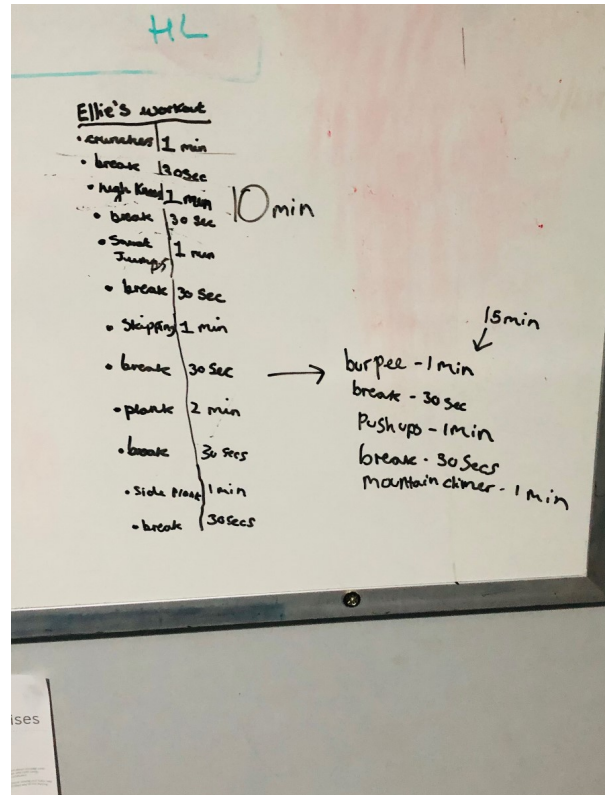 HL
Ellie's workout
• crunches 1 min
• break 30sec
• high knees 1 min
10 min
• break 30 sec
• Squat
Jumps 1 min
• break 30 sec
• Skipping 1 min
• break 30 sec
• plank 2 min
• break 30 secs
• side plank 1 min
• break 30secs
15min
burpee - 1 min
break - 30 sec
Pushups - 1min
break - 30 secs
mountain climer - 1 min
ises